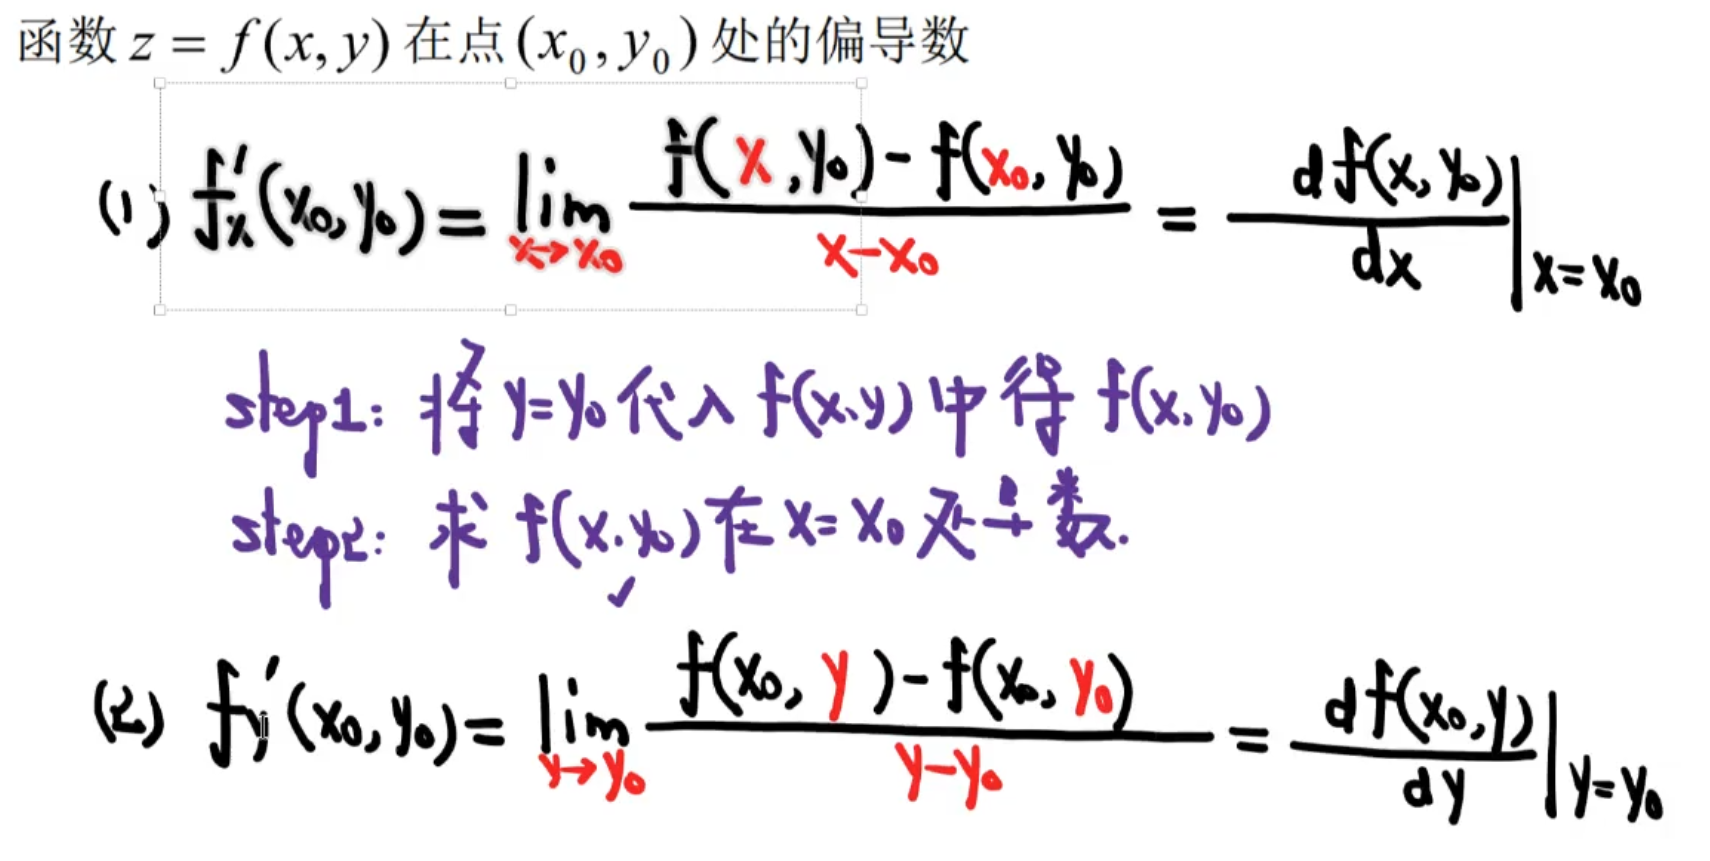 函数 z = f(x, y) 在点 (x₀, y₀) 处的偏导数
(1) f'ₓ(x₀, y₀) = lim_{x→x₀} \frac{f(x, y₀) - f(x₀, y₀)}{x - x₀} = \frac{d f(x, y₀)}{dx} |_{x = x₀}
step1: 将 y = y₀ 代入 f(x, y) 中得 f(x, y₀)
step2: 求 f(x, y₀) 在 x = x₀ 处导数.
(2) f_y'(x₀, y₀) = lim_{y→y₀} \frac{f(x₀, y) - f(x₀, y₀)}{y - y₀} = \frac{d f(x₀, y)}{dy} |_{y = y₀}